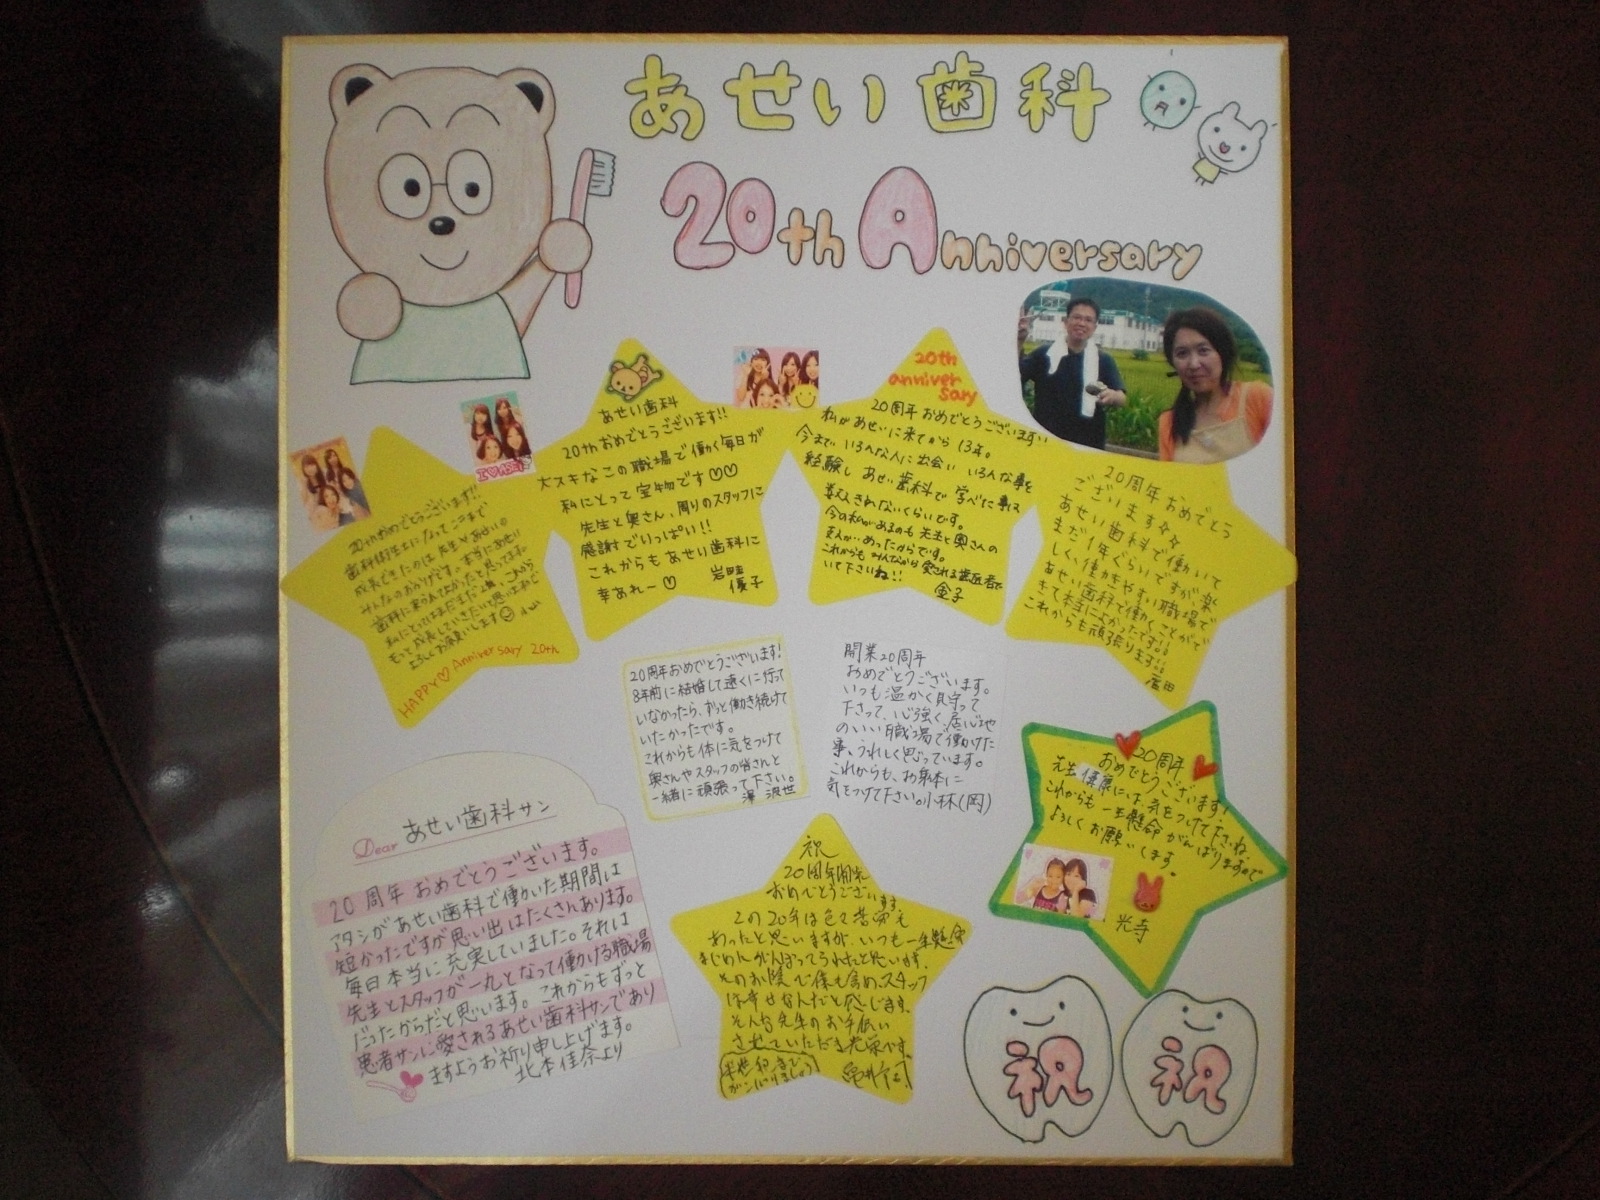 あせい歯科
20th Anniversary
I♡ASEI
20thおめでとうございます!!
歯科衛生士になってここまで
成長できたのは先生やあせいの
みんなのおかげです。本当にあせい
歯科に来られてよかったと思ってます。
もっと成長していきたいと思いますので
よろしくお願いします
HAPPY♡Anniversary 20th
あせい歯科
20thおめでとうございます!!
大スキなこの職場で働く毎日が
私にとって宝物です♡♡
先生と奥さん、周りのスタッフに
感謝でいっぱい!!
これからもあせい歯科に
幸あれ〜♡
岩畦
優子
20th
anniver
sary
20周年おめでとうございます
私があせいに来てから13年。
今までいろんな人に出会いいろんな事を
経験しあせい歯科で学べた事は
数えきれないくらいです。
今の私があるのも先生と奥さんの
支えが‥あったからです。
これからもみんなから愛される歯医者で
いて下さいね!!
金子
20周年おめでとう
ございます☆☆
あせい歯科で働いて
まだ1年ぐらいですが楽
しく、働きやすい職場で
あせい歯科で働くことがで
きて本当によかったです!!
これからも頑張ります!!
20周年おめでとうございます!
8年前に結婚して遠くに行って
いなかったら、ずっと働き続けて
いたかったです。
これからも体に気をつけて
奥さんやスタッフの皆さんと
一緒に頑張って下さい。
澤 沢世
開業20周年
おめでとうございます。
いつも温かく見守って
下さって、心強く、居心地
のいい職場で働けた
事、うれしく思っています。
これからも、お身体に
気をつけて下さい。小林(岡)
20周年
おめでとうございます!
先生健康には、気をつけて下さいね。
これからも一生懸命がんばりますので
よろしくお願いします。
光寺
Dear あせい歯科サン
20周年おめでとうございます。
アタシがあせい歯科で働いた期間は
短かったですが思い出はたくさんあります。
毎日本当に充実していました。それは
先生とスタッフが一丸となって働ける職場
だったからだと思います。これからもずっと
患者サンに愛されるあせい歯科サンであり
ますようお祈り申し上げます。
北本佳奈より
祝
20周年開院
おめでとうございます
この20年は色々苦労も
あったと思いますが、いつも一生懸命
まじめにがんばってこられたと思います。
そのお陰で僕も含めスタッフ
は幸せなんだと感じます。
そんな先生のお手伝い
させていただき光栄です。
祝
祝